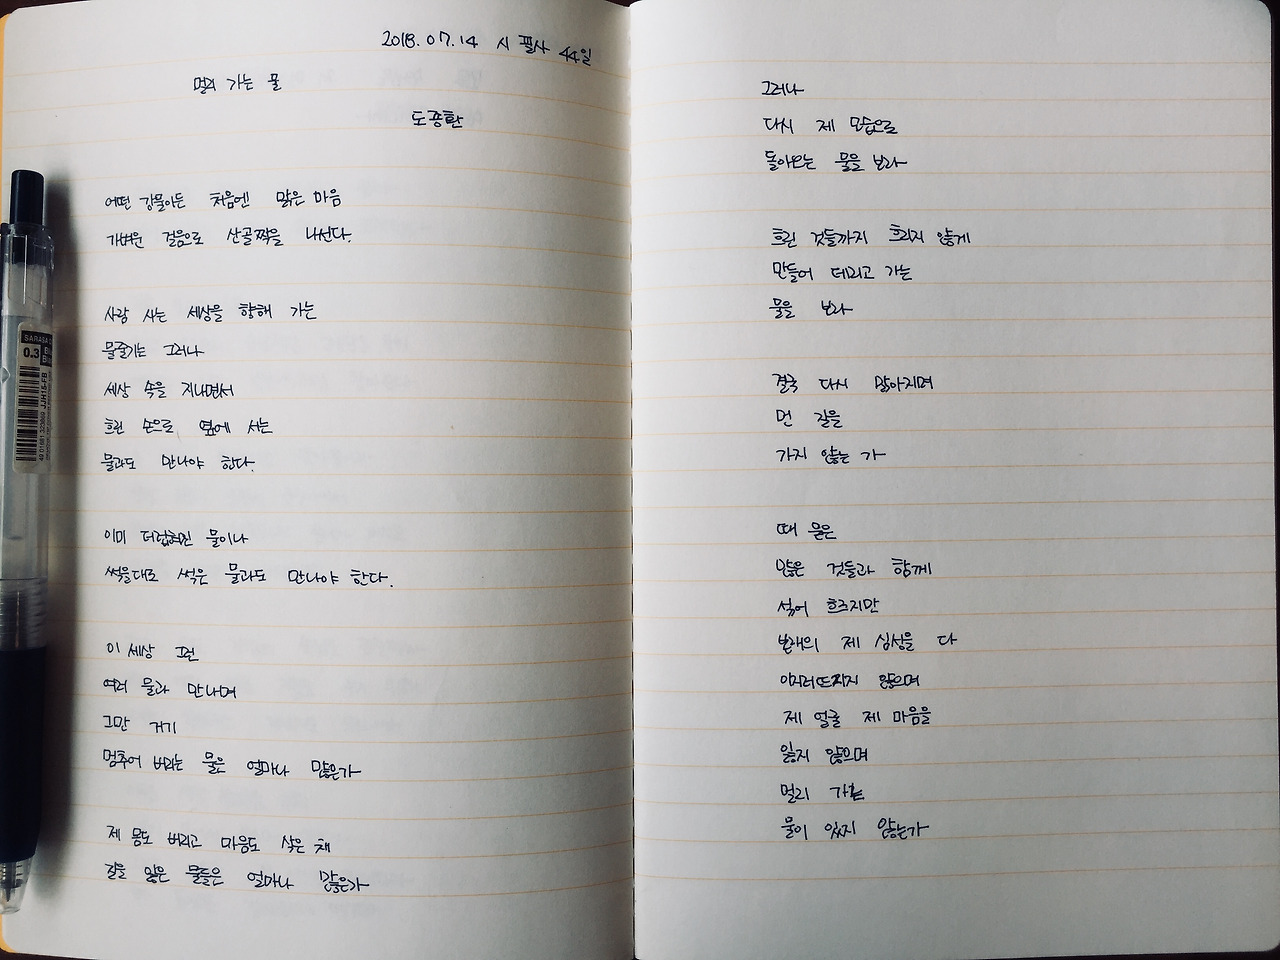 2018.07.14 시 필사 44일
멀리 가는 물
도종환
어떤 강물이든 처음엔 맑은 마음
가벼운 걸음으로 산골짝을 나선다.
사람 사는 세상을 향해 가는
물줄기는 그러나
세상 속을 지나면서
흐린 손으로 옆에 서는
물과도 만나야 한다.
이미 더럽혀진 물이나
썩을대로 썩은 물과도 만나야 한다.
이 세상 그런
여러 물과 만나며
그만 거기
멈추어 버리는 물은 얼마나 많은가
제 몸도 버리고 마음도 삭은 채
길을 잃은 물들은 얼마나 많은가
그러나
다시 제 모습으로
돌아오는 물을 보라
흐린 것들까지 흐리지 않게
만들어 데리고 가는
물을 보라
결국 다시 맑아지며
먼 길을
가지 않는 가
때 묻은
많은 것들과 함께
섞여 흐르지만
본래의 제 심성을 다
이지러뜨리지 않으며
제 얼굴 제 마음을
잃지 않으며
멀리 가는
물이 있지 않는가
SARASA
0.3
JJH15-FB